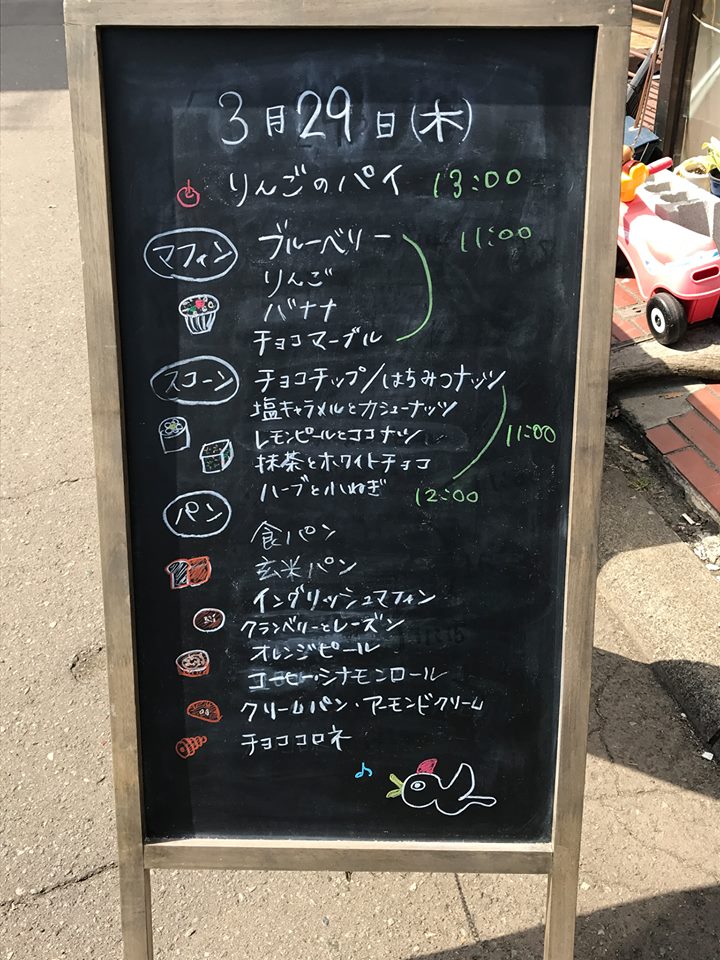 3月29日(木)
りんごのパイ 13:00
マフィン ブルーベリー 11:00
りんご
バナナ
チョコマーブル
スコーン チョコチップ/はちみつナッツ
塩キャラメルとカシューナッツ
レモンピールとココナッツ 11:00
抹茶とホワイトチョコ
ハーブと小ねぎ 12:00
パン
食パン
玄米パン
イングリッシュマフィン
クランベリーとレーズン
オレンジピール
コーヒー・シナモンロール
クリームパン・アーモンドクリーム
チョココロネ